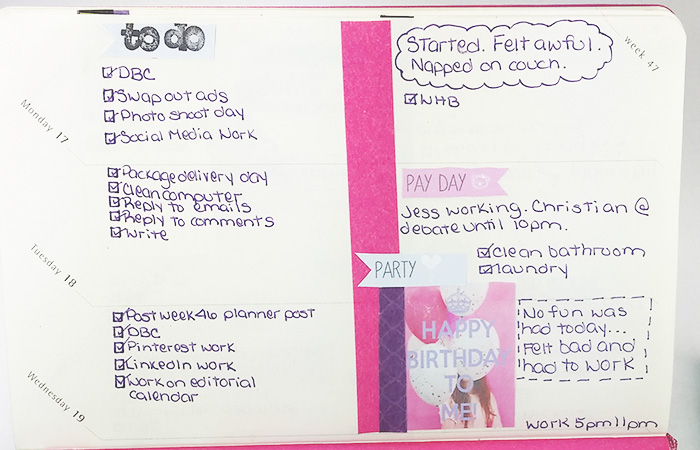 to do
DBC
Swap out ads
Photo shoot day
Social Media Work
Monday 17
Started. Felt awful.
Napped on couch.
week 47
WHB
Package delivery day
Clean computer
Reply to emails
Reply to comments
Write
Tuesday 18
PAY DAY
Jess working. Christian @
debate until 10pm.
Clean bathroom
laundry
PARTY
Post week 46 planner post
DBC
Pinterest work
LinkedIn work
Work on editorial
calendar
Wednesday 19
HAPPY
BIRTHDAY
TO
ME!
No fun was
had today...
Felt bad and
had to work
work 5pm 11pm